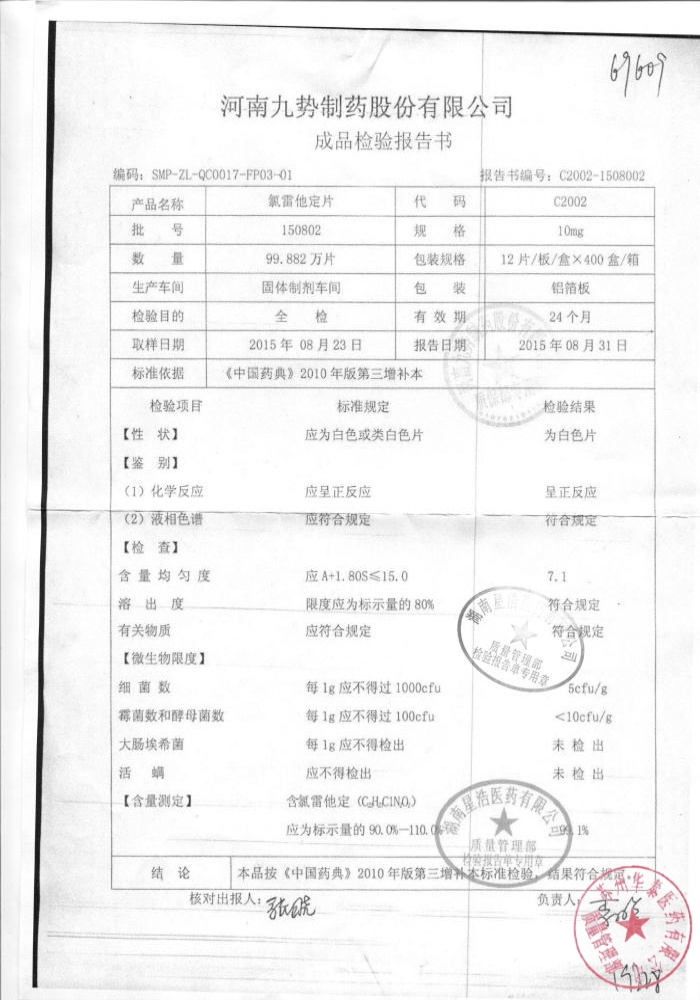 69609
河南九势制药股份有限公司
成品检验报告书
编码：SMP-ZL-QC0017-FP03-01 报告书编号：C2002-1508002
产品名称 氯雷他定片 代 码 C2002
批 号 150802 规 格 10mg
数 量 99.882 万片 包装规格 12 片/板/盒×400 盒/箱
生产车间 固体制剂车间 包 装 铝箔板
检验目的 全 检 有 效 期 24 个月
取样日期 2015 年 08 月 23 日 报告日期 2015 年 08 月 31 日
标准依据 《中国药典》2010 年版第三增补本
检验项目 标准规定 检验结果
【性 状】 应为白色或类白色片 为白色片
【鉴 别】
（1）化学反应 应呈正反应 呈正反应
（2）液相色谱 应符合规定 符合规定
【检 查】
含 量 均 匀 度 应 A+1.80S≤15.0 7.1
溶 出 度 限度应为标示量的 80% 符合规定
有关物质 应符合规定 符合规定
【微生物限度】
细 菌 数 每 1g 应不得过 1000cfu 5cfu/g
霉菌数和酵母菌数 每 1g 应不得过 100cfu ＜10cfu/g
大肠埃希菌 每 1g 应不得检出 未 检 出
活 螨 应不得检出 未 检 出
【含量测定】 含氯雷他定
应为标示量的 90.0%—110.0% 99.1%
结 论 本品按《中国药典》2010 年版第三增补本标准检验，结果符合规定。
核对出报人： 负责人：
湖南星浩医药有限公司
质量管理部
检验报告单专用章
湖南星浩医药有限公司
质量管理部
检验报告单专用章